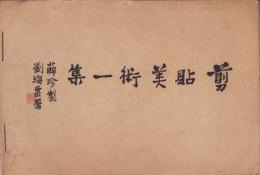 剪貼美術一集
薛珍製
劉海粟署